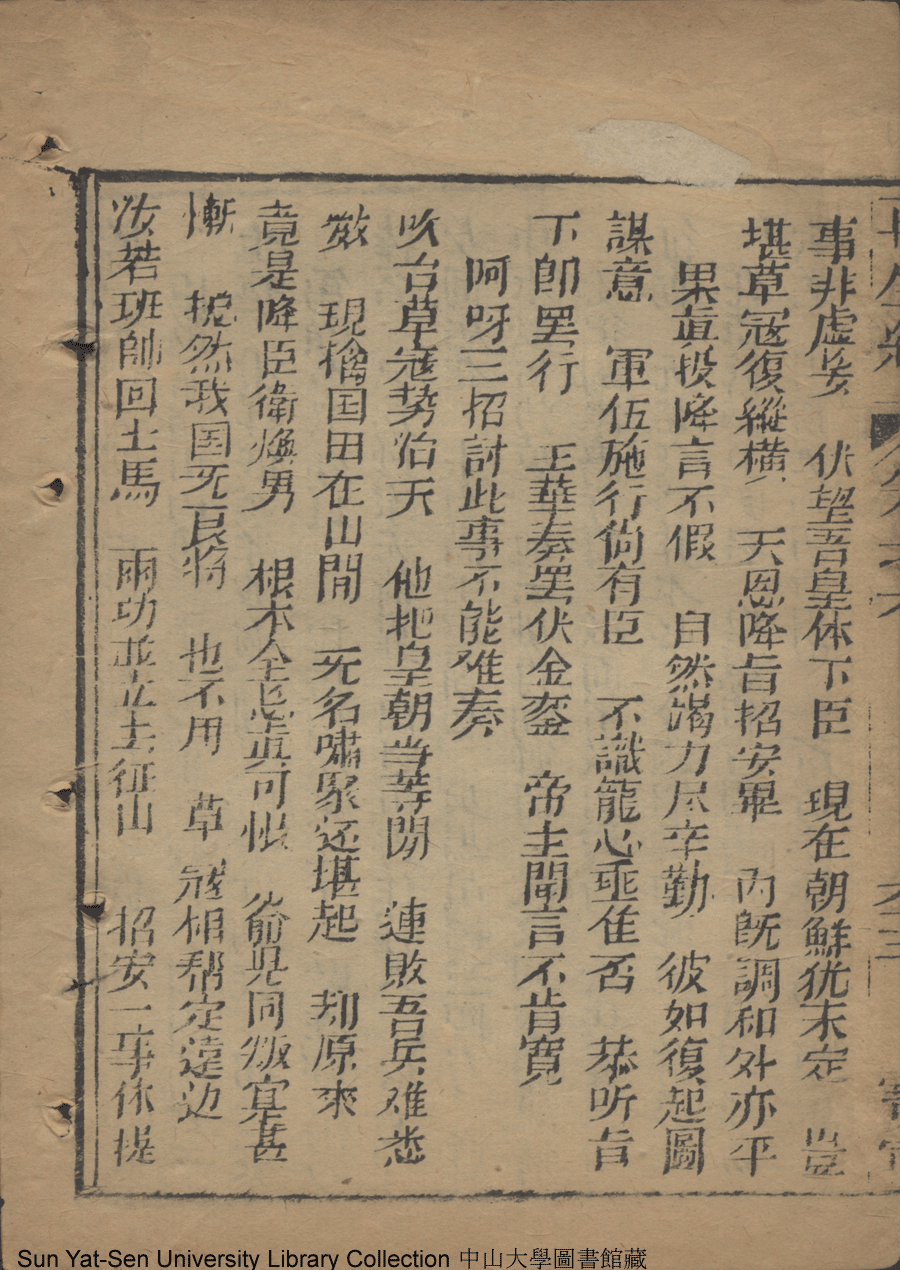 事非虛妄　伏望吾皇体下臣　現在朝鮮犹未定　豈
堪草冦復縱橫　天恩降旨招安畢　内既調和外亦平
果真投降言不假　自然竭力尽辛勤　彼如復起圖
謀意　軍伍施行尚有臣　不識龍心乖隹否　恭听旨
下即罢行　王華奏罢伏金銮　帝主聞言不肯寬
阿呀三招討此事不能准奏
吹台草冦势滔天　他把皇朝当等閑　連敗吾兵难悉
数　現擒国田在山間　无名嘯聚还堪起　却原來
竟是降臣衛煥男　根本全忘真可恨　爺児同叛寔甚
慚　挩然我国无良将　也不用　草冦相帮定遠边
汝若班師回士馬　兩功並立去征山　招安一事休提
再生緣
Sun Yat-Sen University Library Collection 中山大學圖書館藏